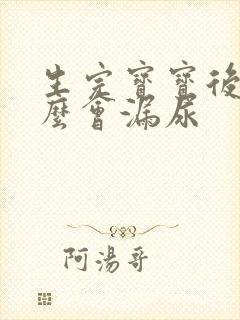 生完寶寶後
麼會漏尿
阿湯哥